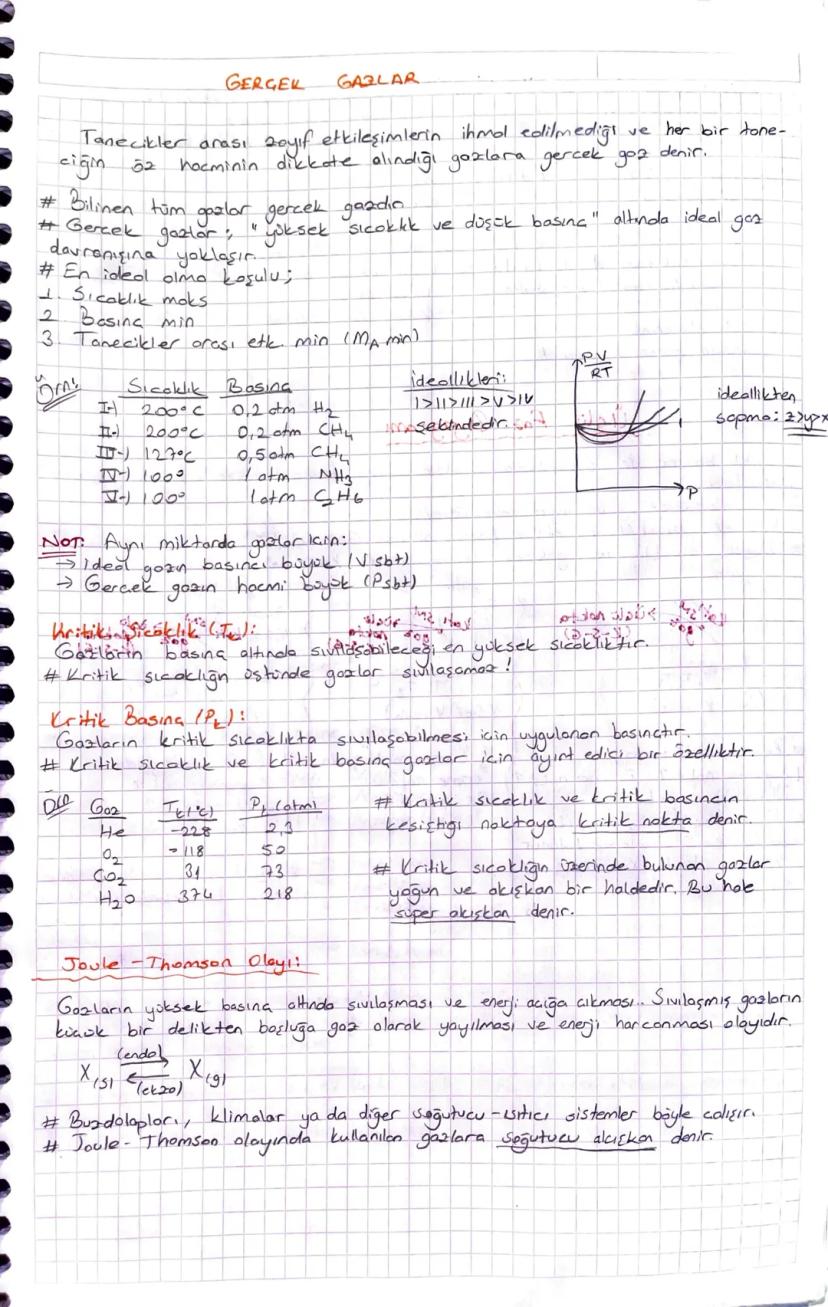 GERÇEK GAZLAR
Tanecikler arası zayıf etkileşimlerin ihmal edilmediği ve her bir tane-
ciğin öz hacminin dikkate alındığı gazlara gerçek gaz denir.
# Bilinen tüm gazlar gerçek gazdır
# Gerçek gazlar; "yüksek sıcaklık ve düşük basınç" altında ideal gaz
davranışına yaklaşır.
# En ideal olma koşulu;
1. Sıcaklık maks
2. Basınç min
3. Tanecikler arası etk. min (MA min)
Örn: Sıcaklık Basınç
I-) 200°C 0,2 atm H2
II-) 200°C 0,2 atm CH4
III-) 127°C 0,5 atm CH4
IV-) 100° 1 atm NH3
V-) 100° 1 atm C2H6
ideallikleri:
I>II>III>V>IV
şekindedir.
P.V
RT
P
ideallikten
sapma: z>y>x
NOT: Aynı miktarda gazlar için:
→ İdeal gazın basıncı büyük (V sbt)
→ Gerçek gazın hacmi büyük (P sbt)
Kritik Sıcaklık (Tk):
Gazların basınç altında sıvılaşabileceği en yüksek sıcaklıktır.
# Kritik sıcaklığın üstünde gazlar sıvılaşamaz!
Kritik Basınç (Pk):
Gazların kritik sıcaklıkta sıvılaşabilmesi için uygulanan basınçtır.
# Kritik sıcaklık ve kritik basınç gazlar için ayırt edici bir özelliktir.
Gaz Tk(°C) Pk (atm)
He -228 2,3
O2 -118 50
CO2 31 73
H2O 374 218
# Kritik sıcaklık ve kritik basıncın
kesiştiği noktaya kritik nokta denir.
# Kritik sıcaklığın üzerinde bulunan gazlar
yoğun ve akışkan bir haldedir. Bu hale
süper akışkan denir.
Joule-Thomson Olayı:
Gazların yüksek basınç altında sıvılaşması ve enerji açığa çıkması.. Sıvılaşmış gazların
küçük bir delikten boşluğa gaz olarak yayılması ve enerji harcanması olayıdır.
(endo)
X(s) ⇌ X(g)
(ekzo)
# Buzdolapları, klimalar ya da diğer soğutucu-ısıtıcı sistemler böyle çalışır.
# Joule-Thomson olayında kullanılan gazlara soğutucu akışkan denir.